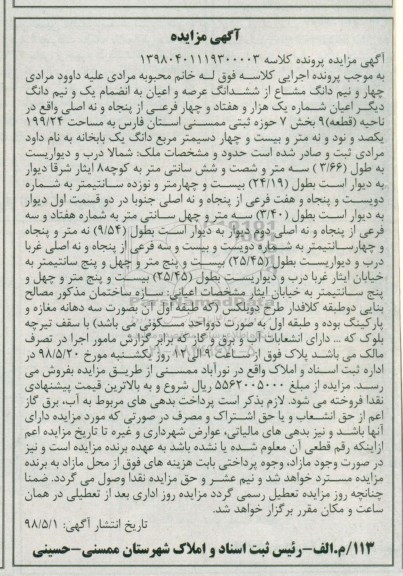 آگهی مزایده
آگهی مزایده پرونده کلاسه ۱۳۹۸۰۴۰۱۱۱۹۳۰۰۰۰۳
به موجب پرونده اجرایی کلاسه فوق له خانم محبوبه مرادی علیه داوود مرادی
چهار و نیم دانگ مشاع از ششدانگ عرصه و اعیان به انضمام یک و نیم دانگ
دیگر اعیان شماره یک هزار و هفتاد و چهار فرعی از پنجاه و نه اصلی واقع در
ناحیه (قطعه)۹ بخش ۷ حوزه ثبتی ممسنی استان فارس به مساحت ۱۹۹/۲۴
یکصد و نود و نه متر و بیست و چهار دسیمتر مربع دانگ یک بابخانه به نام داود
مرادی ثبت و صادر شده است حدود و مشخصات ملک: شمالا درب و دیواریست
به طول (۳/۶۶) سه متر و شصت و شش سانتی متر به کوچه۸ ایثار شرقا دیوار
به دیوار است بطول (۲۴/۱۹) بیست و چهارمتر و نوزده سانتیمتر به شماره
دویست و پنجاه و هفت فرعی از پنجاه و نه اصلی جنوبا در دو قسمت اول دیوار
به دیوار است بطول (۳/۴۰) سه متر و چهل سانتی متر به شماره هفتاد و سه
فرعی از پنجاه و نه اصلی دوم دیوار به دیوار است بطول (۹/۵۴) نه متر و پنجاه
و چهارسانتیمتر به شماره دویست و بیست و سه فرعی از پنجاه و نه اصلی غربا
درب و دیواریست بطول (۲۵/۴۵) بیست و پنج متر و چهل و پنج سانتیمتر به
خیابان ایثار غربا درب و دیواریست بطول (۲۵/۴۵) بیست و پنج متر و چهل و
پنج سانتیمتر به خیابان ایثار مشخصات اعیانی: سازه ساختمان مذکور مصالح
بنایی دوطبقه کلافدار طرح دوبلکس (که طبقه اول آن بصورت سه دهانه مغازه و
پارکینگ بوده و طبقه اول به صورت دوواحد مسکونی می باشد) با سقف تیرچه
بلوک که ... دارای انشعابات آب و برق و گاز که برابر گزارش مامور اجرا در تصرف
مالک می باشد پلاک فوق از ساعت ۹ الی ۱۲ روز یکشنبه مورخ ۹۸/۵/۲۰ در
اداره ثبت اسناد و املاک واقع در نورآباد ممسنی از طریق مزایده بفروش می
رسد. مزایده از مبلغ ۵۵۶۲۰۰۵۰۰۰ ریال شروع و به بالاترین قیمت پیشنهادی
نقدا فروخته می شود. لازم بذکر است پرداخت بدهی های مربوط به آب، برق گاز
اعم از حق انشعاب و یا حق اشتراک و مصرف در صورتی که مورد مزایده دارای
آنها باشد و نیز بدهی های مالیاتی، عوارض شهرداری و غیره تا تاریخ مزایده اعم
ازاینکه رقم قطعی آن معلوم شده یا نشده باشد به عهده برنده مزایده است و نیز
در صورت وجود مازاد، وجوه پرداختی بابت هزینه های فوق از محل مازاد به برنده
مزایده مسترد خواهد شد و نیم عشر و حق مزایده نقدا وصول می گردد. ضمنا
چنانچه روز مزایده تعطیل رسمی گردد مزایده روز اداری بعد از تعطیلی در همان
ساعت و مکان مقرر برگزار خواهد شد.
تاریخ انتشار آگهی: ۹۸/۵/۱
۱۱۳/م.الف-رئیس ثبت اسناد و املاک شهرستان ممسنی-حسینی